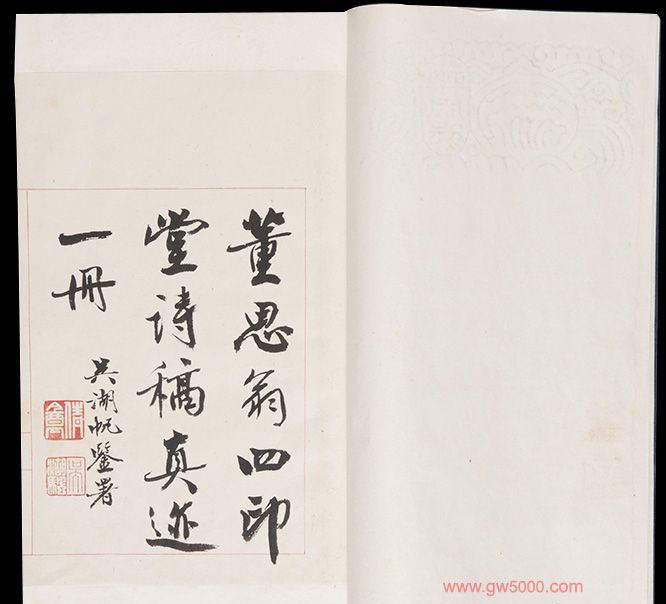 董思翁四印
堂诗稿真迹
一冊
吴湖帆鑒署
www.gw5000.com